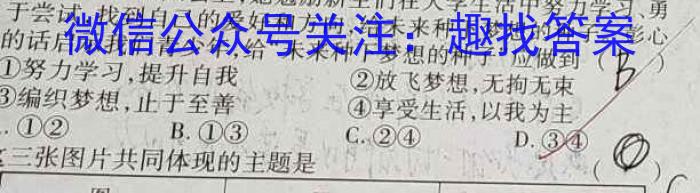 于尝试,找到自
勇
的话启
给 未来种 梦想的种子 应做到 ( B )
微信公众号关注：趣找答案
①努力学习,提升自我 ②放飞梦想,无拘无束
③编织梦想,止于至善 ④享受生活,以我为主
. ①② B. ①③ C. ②④ D. ③④
三张图片共同体现的主题是 ( )
图